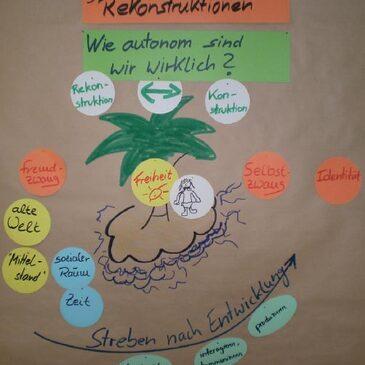 Rekonstruktionen
Wie autonom sind
wir wirklich?
Rekon-
struktion
Kon-
struktion
Fremd-
zwang
Freiheit
Selbst-
zwang
Identität
alte
Welt
"Mittel-
stand"
sozialer
Raum
Zeit
Streben nach Entwicklung
produzieren
interagieren,
kommunizieren